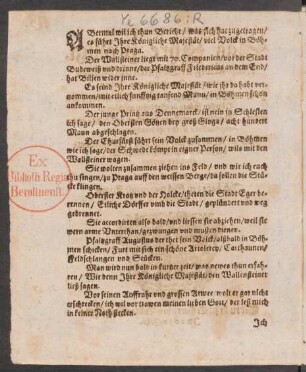 Ye 6686:R
ABermal will ich thun Bericht / was sich hat zugetragen /
es führt Ihre Königliche Majestät / viel Volck in Böh-
men nach Praga.
Der Wallsteiner liegt mit 70. Companien / vor der Stadt
Budeweiß und drinne / der Pfaltzgraff Fridericus an dem End /
hat Pilsen wider inne.
Es seind Ihre Königliche Majestät / wie ihr da habt ver-
nommen / mit etlich funfftzig tausend Mann / in Böhmen
ankommen.
Der junge Printz aus Dennemarck / ist nein in Schlesien
ich sage / den Obersten Gönen bey groß Glogo / acht hundert
Mann abgeschlagen.
Der Churfürst führt sein Volck zusammen / in Böhmen
wie ich sage / der Schwede kömpt in eigner Person / wils mit den
Wallsteiner wagen.
Sie wolten zusammen ziehen ins Feld / und wie ich euch
thu singen / zu Praga auff den weissen Berge / da sollen die Stü-
cke klingen.
Oberster Krag und der Holcke / theten die Stadt Eger be-
rennen / Etliche Dörffer umb die Stadt / geplündert und weg
gebrennet.
Sie accordirten also bald / und liessen sie abziehen / weil sie
wern arme Unterthan / gezwungen und musten dienen.
Pfaltzgraff Augustus der thet sein Volck / allzumal in Böh-
men schicken / Furt mit sich ein schöne Artolerey / Carthaunen /
Feldschlangen und Stücken.
Man wird nun bald in kurtzer zeit / was newes thun erfah-
ren / Wie denn Ihre Königliche Majestät / den Wallensteiner
ließ sagen.
Vor seinen Auffruhr und grossen Armee wolt er gar nicht
erschrecken / ich wil vor trawen meinen lieben Gott / der leß mich
in keiner Noth stecken.
Ich
Ex
Biblioth. Regia
Berolinensi.